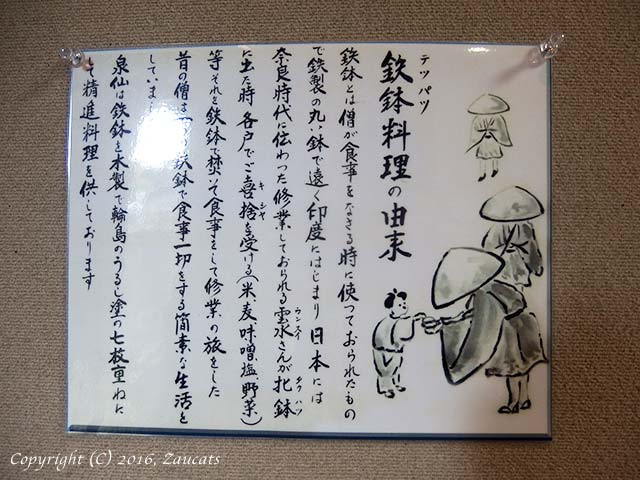 テツパツ
鉄鉢料理の由来
鉄鉢とは僧が食事をなさる時に使っておられたもの
で鉄製の丸い鉢で遠く印度にはじまり日本には
奈良時代に伝わった修業しておられる雲水さんが托鉢
ウンスイ
タクハツ
に出た時各戸でご喜捨を受ける(米、麦、味噌、塩、野菜)
キシャ
等それを鉄鉢で焚いて食事をして修業の旅をした
昔の僧は一つの鉄鉢で食事一切をする簡素な生活を
していました
泉仙は鉄鉢を木製で輪島のうるし塗の七枚重ねに
て精進料理を供しております
Copyright (C) 2016, Zaucats